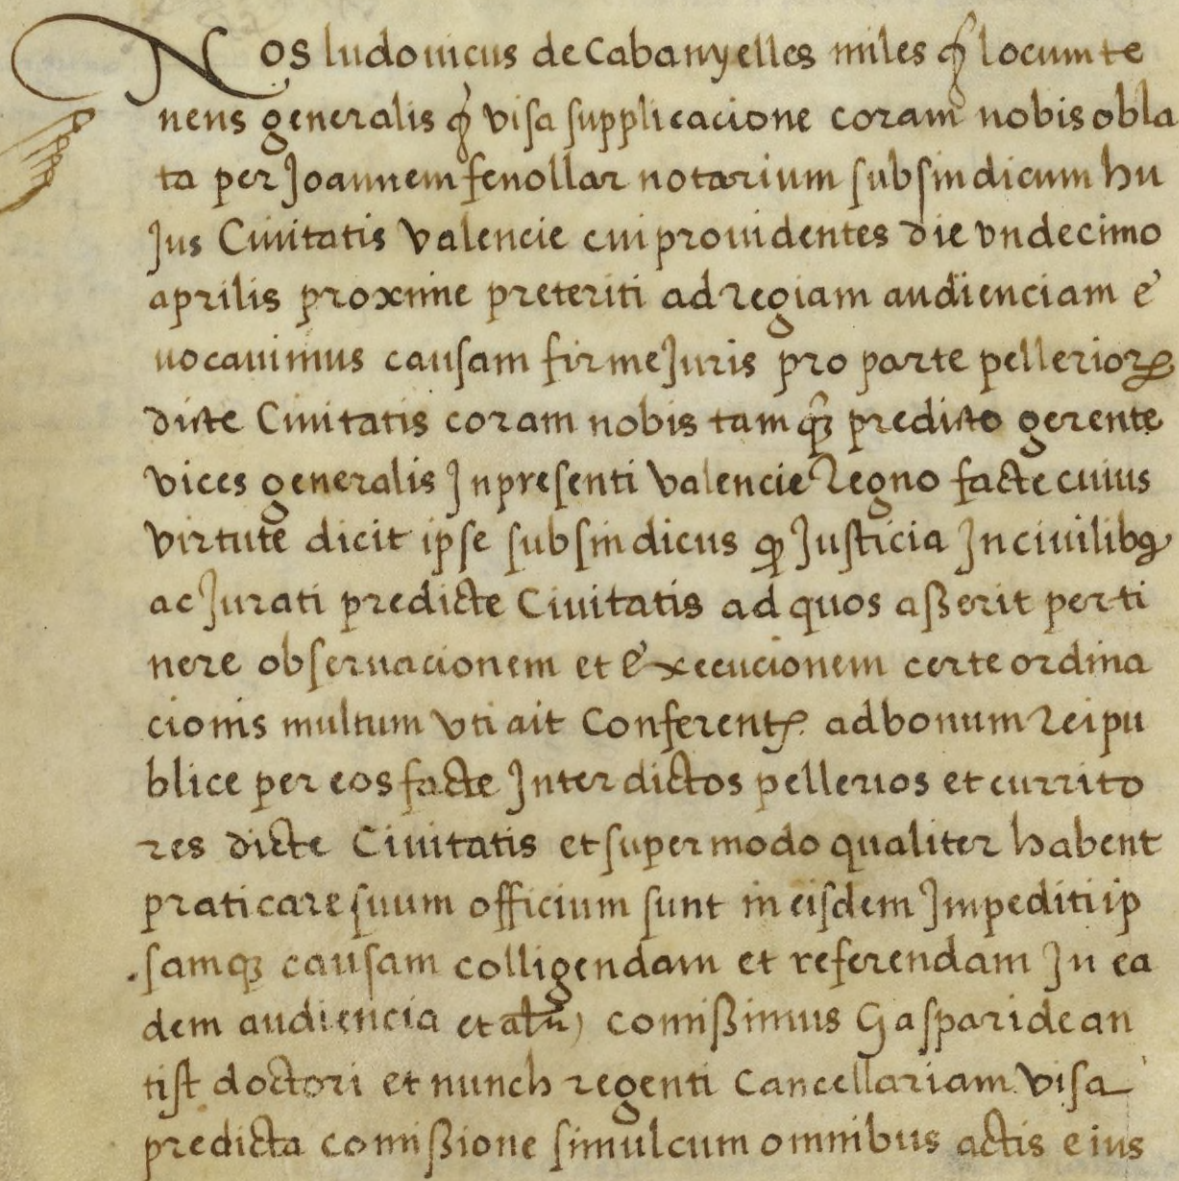 Nos ludouicus de Cabanyelles miles q̃ locumte
nens generalis q̃ visa supplicacione coram nobis obla
ta per Joannem fenollar notarium subsindicum hu
Jus Ciuitatis valencie cui prouidentes die vndecimo
aprilis proxime preteriti ad regiam audienciam e
uocauimus causam firme Juris pro parte pellerioꝝ
dicte Ciuitatis coram nobis tamqꝫ predicto gerente
vices generalis In presenti valencie Regno facte cuius
virtute dicit ipse subsindicus ꝙ Justicia In ciuilibꝯ
ac Jurati predicte Ciuitatis ad quos aßerit perti
nere obseruacionem et execucionem certe ordina
cionis multum vti ait Conferentꝭ ad bonum Reipu
blice per eos facte Inter dictos pellerios et currito
res dicte Ciuitatis et super modo qualiter habent
praticare suum officium sunt in eisdem Impediti ip
samqꝫ causam colligendam et referendam In ea
dem audiencia et altr̃) comißimus Gaspari de an
tist doctori et nunch regenti Cancellariam visa
predicta comißione simul cum omnibus actis eius